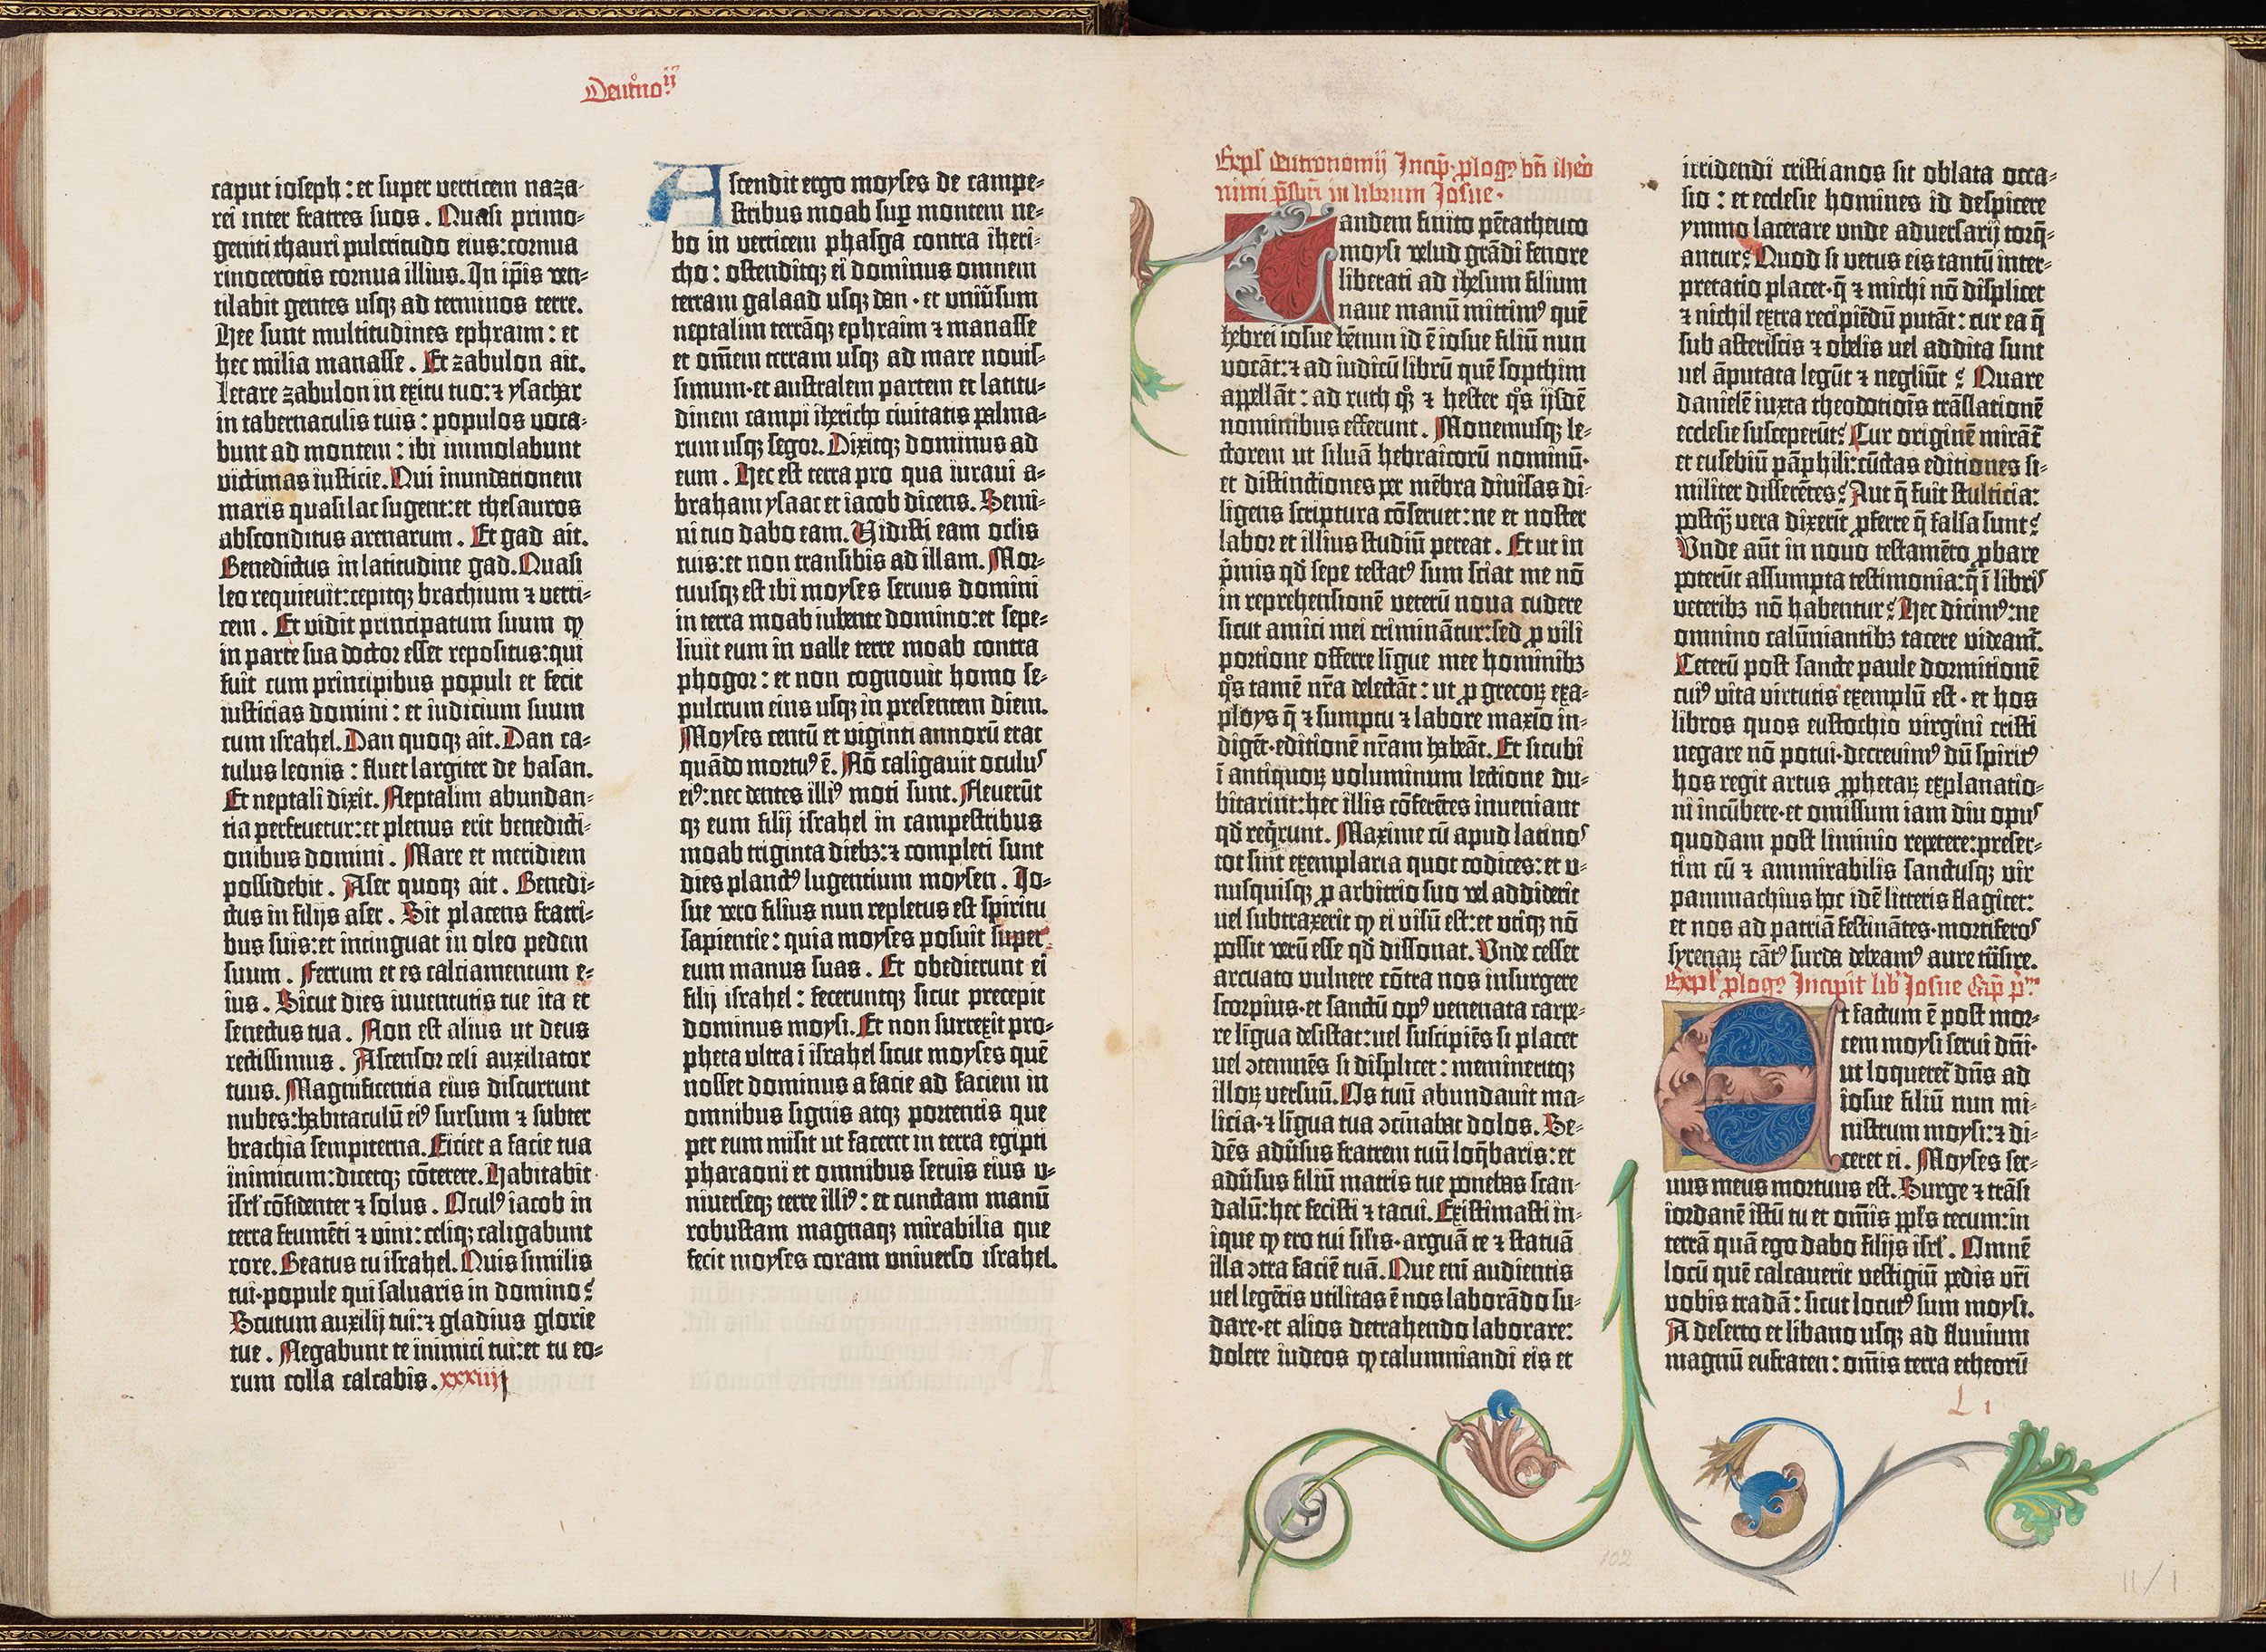 Deut̾noıj
caput ioseph : et super verticem naza-
rei inter fratres suos . Quasi primo-
geniti thauri pulcritudo eius: cornua
rinocerotis cornua illius. In ip̄is ven-
tilabit gentes usqꝫ ad terminos terre.
Hee sunt multitudines ephraim : et
hec milia manasse . Et zabulon ait.
Letare zabulon in exitu tuo: ⁊ ysachar
in tabernaculis tuis : populos voca-
bunt ad montem : ibi immolabunt
victimas iusticie. Qui inundationem
maris quasi lac sugent: et thesauros
absconditus arenarum . Et gad ait.
Benedictus in latitudine gad. Quasi
leo requieuit: cepitqꝫ brachium ⁊ verti-
cem . Et vidit principatum suum ꝙ
in parte sua doctor esset repositus: qui
fuit cum principibus populi et fecit
iusticias domini : et iudicium suum
cum israhel. Dan quoqꝫ ait. Dan ca-
tulus leonis : fluet largiter de basan.
Et neptali dixit. Neptalim abundan-
tia perfruetur: et plenus erit benedicti-
onibus domini . Mare et meridiem
possidebit . Aser quoqꝫ ait . Benedi-
ctus in filijs aser . Sit placens fratri-
bus suis: et intinguat in oleo pedem
suum . Ferrum et es calciamentum e-
ius . Sicut dies iuuentutis tue ita et
senectus tua . Non est alius ut deus
rectissimus . Ascensor celi auxiliator
tuus. Magnificentia eius discurrunt
nubes: habitaculū eiꝰ sursum ⁊ subter
brachia sempiterna. Eiciet a facie tua
inimicum: dicetqꝫ cōterere. Habitabit
isrl̓ cōfidenter ⁊ solus . Oculꝰ iacob in
terra frumēti ⁊ vini: celiqꝫ caligabunt
rore. Beatus tu israhel. Quis similis
tui· popule qui saluaris in domino?
Scutum auxilij tui: ⁊ gladius glorie
tue . Negabunt te inimici tui: et tu eo-
rum colla calcabis . xxxiiij
Ascendit ergo moyses de campe-
stribus moab sup̱ montem ne-
bo in verticem phasga contra iheri-
cho : ostenditqꝫ ei dominus omnem
terram galaad usqꝫ dan · et uniū̓sum
neptalim terrāqꝫ ephraim ⁊ manasse
et om̄em terram usqꝫ ad mare nouis-
simum· et australem partem et latitu-
dinem campi iherich ciuitatis palma-
rum usqꝫ segor. Dixitqꝫ dominus ad
eum . Hec est terra pro qua iuraui a-
braham ysaac et iacob dicens. Semi-
ni tuo dabo eam. Vidisti eam oclis
tuis: et non transibis ad illam. Mor-
tuusqꝫ est ibi moyses seruus domini
in terra moab iubente domino: et sepe-
liuit eum in valle terre moab contra
phogor : et non cognouit homo se-
pulcrum eius usqꝫ in presentem diem.
Moyses centū et viginti annorū erat
quādo mortuꝰ ē. Nō caligauit oculus
eiꝰ: nec dentes illiꝰ moti sunt. Fleuerūt
qꝫ eum filij israhel in campestribus
moab triginta diebꝫ: ⁊ completi sunt
dies planctꝰ lugentium moysen . Io-
sue vero filius nun repletus est spiritu
sapientie : quia moyses posuit super
eum manus suas . Et obedierunt ei
filij israhel : feceruntqꝫ sicut precepit
dominus moysi. Et non surrexit pro-
pheta ultra ī israhel sicut moyses quē
nosset dominus a facie ad faciem in
omnibus signis atqꝫ portentis que
per eum misit ut faceret in terra egipti
pharaoni et omnibus seruis eius v-
niuerseqꝫ terre illiꝰ : et cunctam manū
robustam magnaqꝫ mirabilia que
fecit moyses coram vniuerso israhel.
Expl̓ deutronomij Incip̄ ꝓlogꝰ bt̄i ihero
nimi p̄sbit̓i in librum Iosue ·
Tandem finito pētatheuco
moysi velud grādi fenore
liberati ad ihesum filium
naue manū mittimꝰ quē
hebrei iosue bēnun id ē iosue filiū nun
vocāt: ⁊ ad iudicū librū quē sopthim
appellāt : ad ruth qͦꝫ ⁊ hester qͦs ijsdē
nominibus efferunt . Monemusqꝫ le-
ctorem ut siluā hebraicorū nominū·
et distinctiones per mēbra diuisas di-
ligens scriptura cōseruet: ne et noster
labor et illius studiū pereat . Et ut in
p̓mis qd̓ sepe testatꝰ sum sciat me nō
in reprehensionē veterū noua cudere
sicut amici mei criminātur: sed ꝓ vili
portione offerre ligue mee hominibꝫ
qͦs tamē nr̄a delectāt : ut ꝓ grecoꝝ exa-
ploys q̄ ⁊ sumptu ⁊ labore maxīo in-
digēt· editionē nr̄am habeāt. Et sicubi
ī antiquoꝝ voluminum lectione du-
bitarint: hec illis cōferētes inueniant
qd̓ req̓runt. Maxime cū apud latinos
tot sint exemplaria quot codices: et v-
nusquisqꝫ ꝓ arbitrio suo vel addiderit
uel subtraxerit ꝙ ei visū est: et vtiqꝫ nō
possit verū esse qd̓ dissonat. Vnde cesset
arcuato vulnere cōtra nos insurgere
scorpius· et sanctū opꝰ venenata carpe-
re līgua desistat: uel suscipiēs si placet
uel ꝯtemnēs si displicet : memineritqꝫ
illoꝝ versuū. Os tuū abundauit ma-
licia· ⁊ līgua tua ꝯcīnabat dolos. Se-
dēs adū̓sus fratrem tuū loq̄baris: et
adū̓sus filiū matris tue ponebas scan-
dalū: hec fecisti ⁊ tacui. Existimasti in-
ique ꝙ ero tui sil̓is· arguā te ⁊ statuā
illa ꝯtra faciē tuā. Que enī audientis
uel legētis vtilitas ē nos laborādo su-
dare· et alios detrahendo laborare:
dolere iudeos ꝙ calumniandi eis et
irridendi cristianos sit oblata occa-
sio : et ecclesie homines id despicere
ymmo lacerare vnde aduersarij torq̄-
antur? Quod si vetus eis tantū inter-
pretatio placet· q̄ ⁊ michi nō displicet
⁊ nichil extra recipiēdū putāt : cur ea q̄
sub asteriscis ⁊ obelis uel addita sunt
uel āputata legūt ⁊ negliūt ? Quare
danielē iuxta theodotiōis trāslationē
ecclesie susceperūt? Cur originē mirāt̄
et eusebiū pāphili: cūctas editiones si-
militer disserētes? Aut q̄ fuit stulticia:
postqꝫ̄ vera dixerīt ꝓferre q̄ falsa sunt?
Vnde aūt in nouo testamēto ꝓbare
poterūt assumpta testimonia: q̄ ī libris
veteribꝫ nō habentur? Hec dicimꝰ: ne
omnino calūniantibꝫ tacere videam̄.
Ceterū post sancte paule dormitionē
cuiꝰ vita virtutis exemplū est · et hos
libros quos eustochio virgini cristi
negare nō potui· decreuimꝰ dū spiritꝰ
hos regit artus ꝓphetaꝝ explanatio-
ni incūbere· et omissum iam diu opus
quodam post liminio repetere: preser-
tim cū ⁊ ammirabilis sanctusqꝫ vir
pammachius hoc idē litteris flagitet:
et nos ad patriā festinātes· mortiferos
syrenaꝝ cātꝰ surda debeamꝰ aure trāsire.
Expl̓ ꝓlogꝰ Incipit lib̓ Iosue Cap̄ p̄m
Et factum ē post mor-
tem moysi serui dn̄i·
ut loqueret̄ dn̄s ad
iosue filiū nun mi-
nistrum moysi: ⁊ di-
ceret ei . Moyses ser-
uus meus mortuus est. Surge ⁊ trāsi
iordanē istū tu et om̄is pp̄ls tecum: in
terrā quā ego dabo filijs isrl̓ . Omnē
locū quē calcauerit vestigiū pedis vr̄i
vobis tradā : sicut locutꝰ sum moysi.
A deserto et libano usqꝫ ad fluuium
magnū eufraten : om̄is terra etheorū
L i
102
II/1